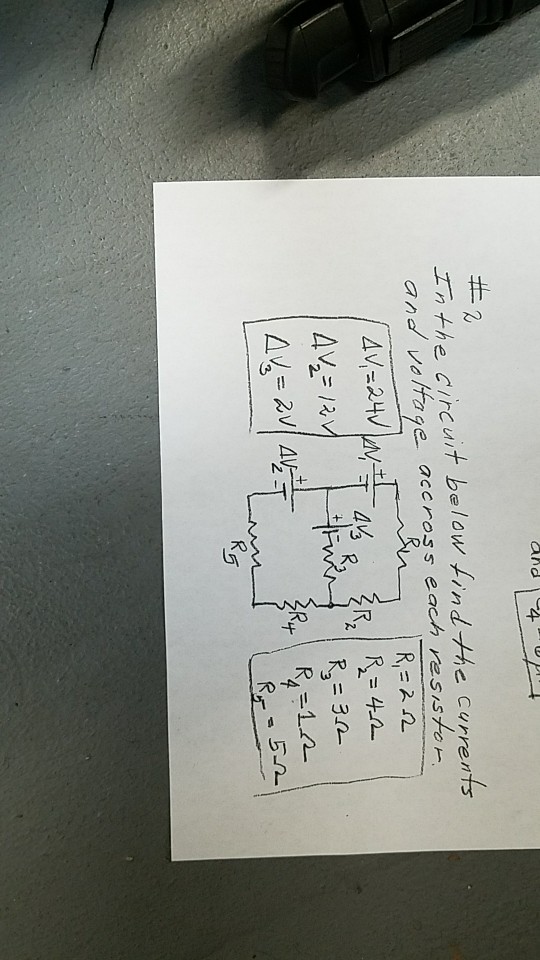 #2
In the circuit below find the currents
and voltage accross each resistor.
ΔV₁=24V
ΔV₂=12V
ΔV₃=2V
ΔV₁
+
-
R₁
ΔV₃
+
-
R₃
R₂
ΔV₂
+
-
R₅
R₄
R₁=2Ω
R₂=4Ω
R₃=3Ω
R₄=1Ω
R₅=5Ω
and